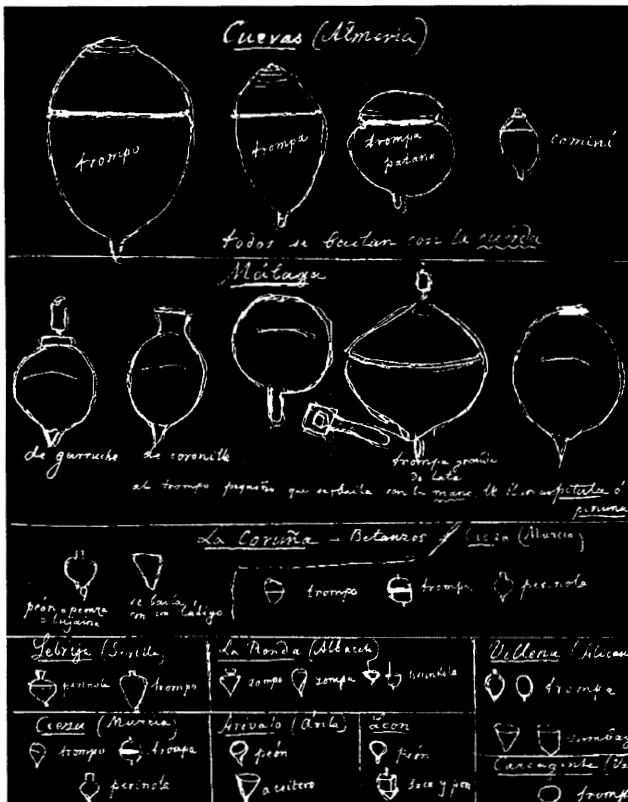 Cuevas (Almería)
trompo
trompa
trompa
patana
cominí
todos se bailan con la cuerda
Málaga
de garruche
de coronilla
trompa grande
de lata
al trompo pequeño que se baila con la mano le llaman pitula ó
La Coruña - Betanzos
Cieza (Murcia)
peón o peonza
se baila
con un látigo
trompo
trompa
perinola
Lebrija (Sevilla)
perinola
trompo
La Ronda (Albacete
zompo
zompa
Villena (Alican
trompa
Cieza (Murcia)
trompo
trompa
perinola
Arévalo (Ávila)
peón
aceitero
León
peón
saca y pon
zumbay
Carcagente (Va
tromp